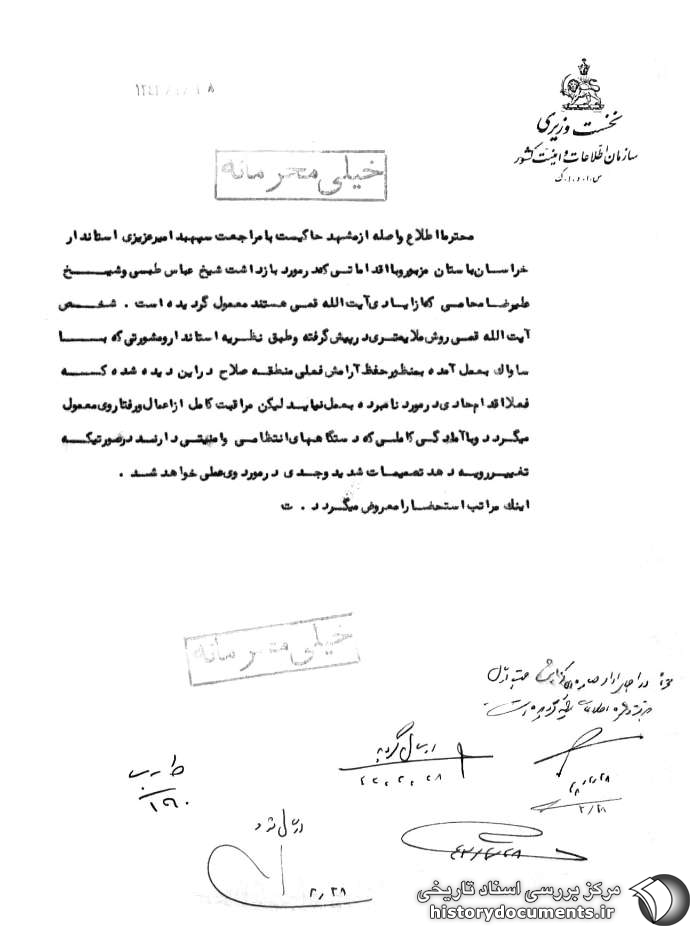 نخست وزیری
سازمان اطلاعات و امنیت کشور
س.ا.و.ا.ک
خیلی محرمانه
محترما اطلاع واصله ازمشهد حاکیست بامراجعت سپهبد امیرعزیزی استاندار
خراسان باستان مزبور و با اقداماتی که در مورد بازداشت شیخ عباس طبسی و شیخ
علیرضا محامی که از ایادی آیت الله قمی هستند معمول گردیده است . شخص
آیت الله قمی روش ملایمتری در پیش گرفته و طبق نظریه استاندار و مشورتی که با
ساواک بعمل آمده بمنظور حفظ آرامش فعلی منطقه صلاح در این دیده شده که
فعلا اقدام حادی در مورد نامبرده بعمل نیاید لیکن مراقبت کامل از اعمال و رفتار وی معمول
میگردد و با آمادگی کاملی که دستگاههای انتظامی و امنیتی دارند در صورتیکه
تغییر رویه دهد تصمیمات شدید و جدی در مورد وی عملی خواهد شد .
اینک مراتب استحضارا معروض میگردد . ت
خیلی محرمانه
ارسال گردید
۴۳/۲/۲۸
۲/۲۸
۱۶۰
ارسال شد
۲/۲۸
مرکز بررسی اسناد تاریخی
historydocuments.ir